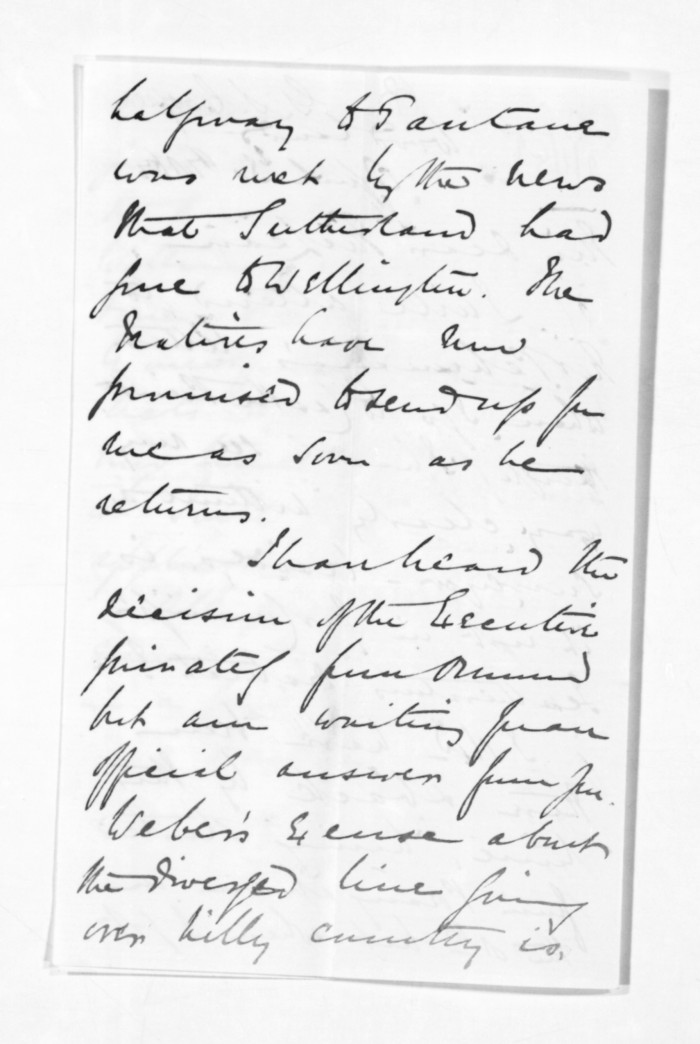 halfway to Tautane
was met by the news
that Sutherland had
gone to Wellington. The
Natives have now
promised to send up for
me as soon as he
returns.
I have heard the
decision of the Executive
privately from Ormond
but am waiting for an
official answer from you.
Weber's excuse about
the diverged line going
over hilly country is,